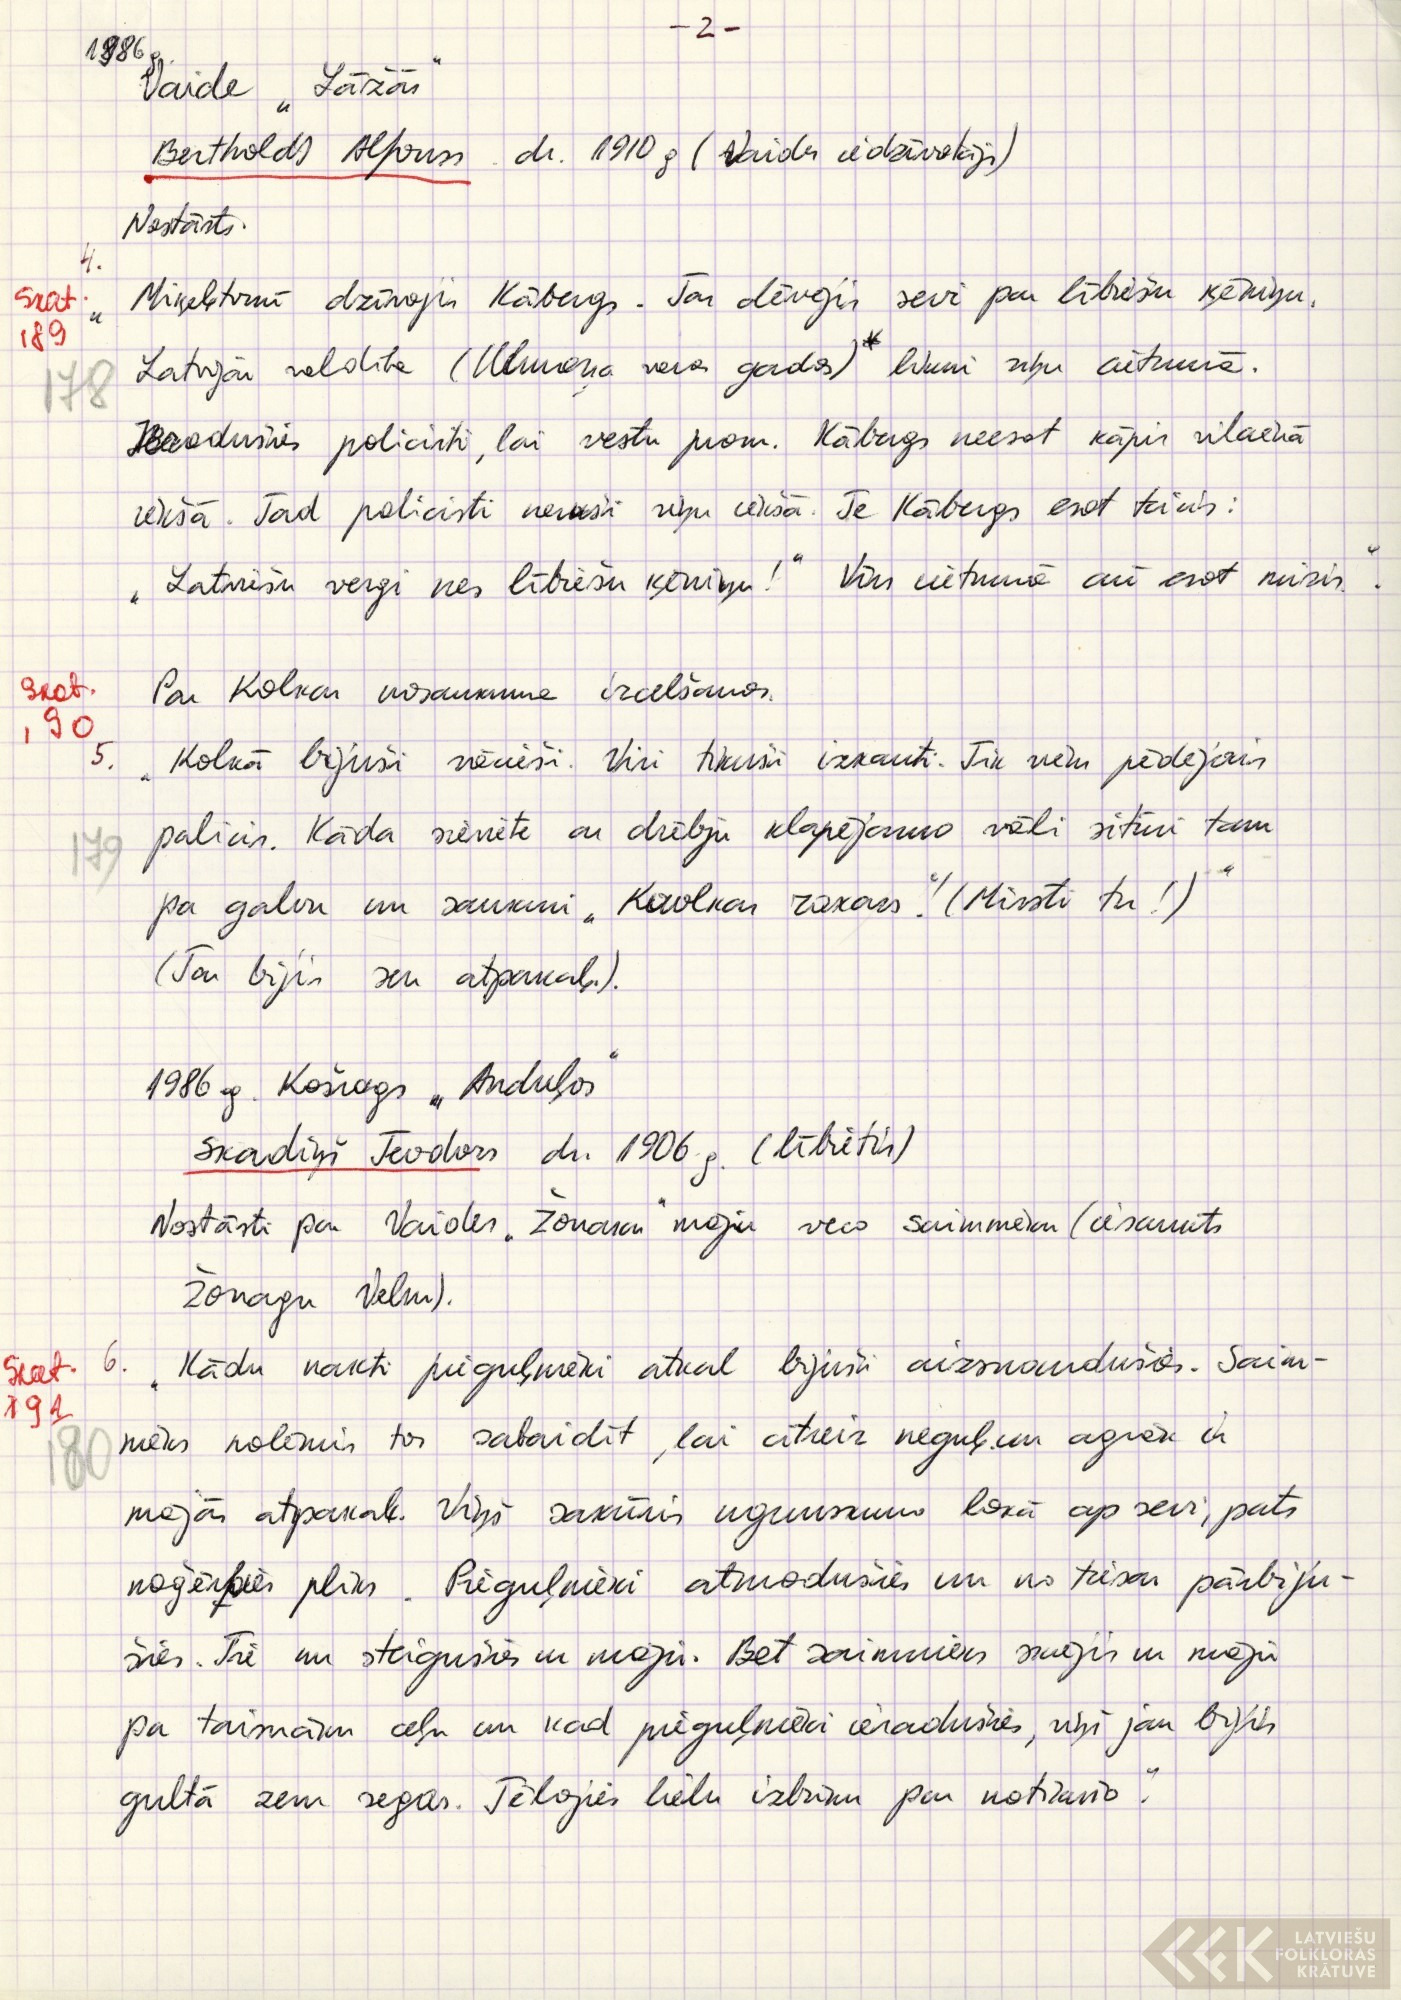 - 2 -
1986 g.
Vaide „Lāžās“
Bertholds Alfonss dz. 1910 g (Vaides iedzīvotājs)
Nostāsts.
4.
Skat. 189
„Miķeļtornī dzīvojis Kābergs. Tas dēvējis sevi par lībiešu ķēniņu.
178
Latvijas valdība (Ulmaņa varas gados)* likusi viņu cietumā.
Ieradušies policisti, lai vestu prom. Kābergs neesot kāpis vilcienā
iekšā. Tad policisti nesuši viņu iekšā. Te Kābergs esot teicis:
„Latviešu vergi nes lībiešu ķēniņu!“ Viņš cietumā arī esot miris.“.
Skat. 190
Par Kolkas nosaukuma izcelšanos.
5. „Kolkā bijuši vācieši. Visi tikuši izkauti. Tik viens pēdējais
179
palicis. Kāda sieviete ar drēbju klapējamo vāli situsi tam
pa galvu un saukusi „Kuolkas rakars“! (Mirsti tu!)“
(Tas bijis sen atpakaļ.).
1986 g. Košrags „Anduļos“
Skadiņš Teodors dz. 1906 g. (lībietis)
Nostāsti par Vaides „Žonaku“ māju veco saimnieku (iesaukts
Žonagu Velns).
Skat. 191
6. „Kādu nakti pieguļnieki atkal bijuši aizsnaudušies. Saim-
180
nieks nolēmis tos sabaidīt, lai otrreiz neguļ un agrāk ir
mājās atpakaļ. Viņš sakūris ugunskuru lokā ap sevi, pats
noģērbies pliks. Pieguļnieki atmodušies un no tiesas pārbiju-
šies. Tie nu steigušies uz māju. Bet saimnieks skrējis uz māju
pa taisnāku ceļu un kad pieguļnieki ieradušies, viņš jau bijis
gultā zem segas. Tēlojis lielu izbrīnu par notikušo“.
LATVIEŠU
FOLKLORAS
KRĀTUVE